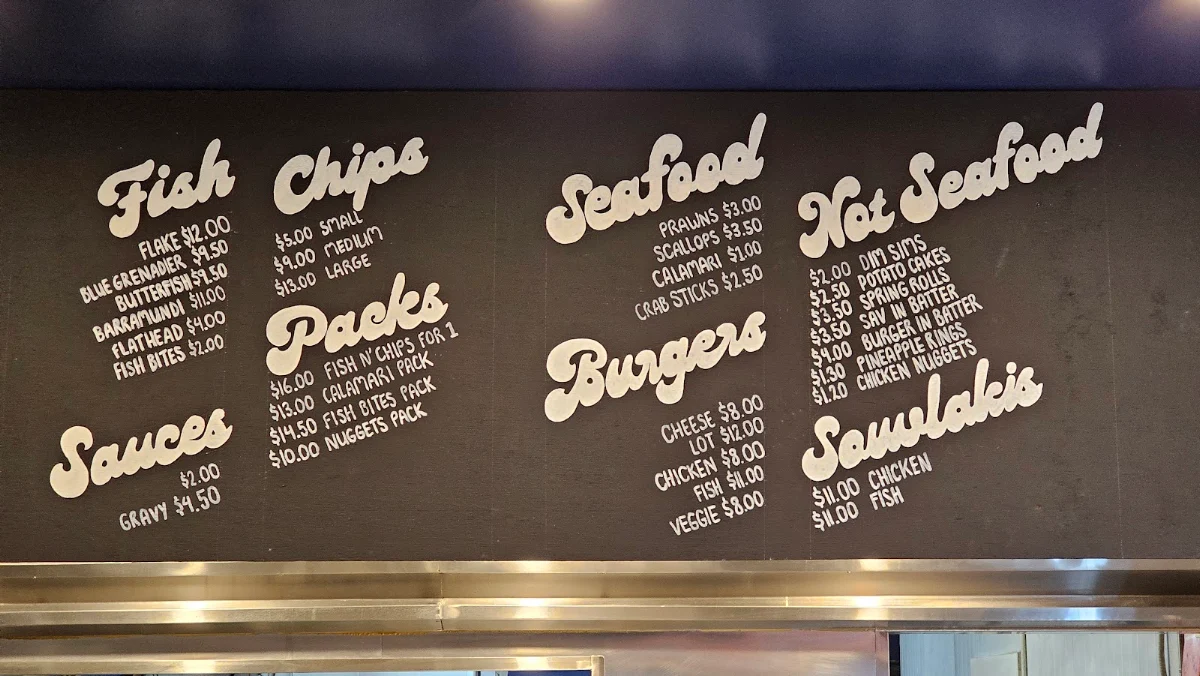 Fish
FLAKE $12.00
BLUE GRENADIER $9.50
BUTTERFISH $9.50
BARRAMUNDI $11.00
FLATHEAD $4.00
FISH BITES $2.00
Sauces
$2.00
GRAVY $4.50
Chips
$5.00 SMALL
$9.00 MEDIUM
$13.00 LARGE
Packs
$16.00 FISH N' CHIPS FOR 1
$13.00 CALAMARI PACK
$14.50 FISH BITES PACK
$10.00 NUGGETS PACK
Seafood
PRAWNS $3.00
SCALLOPS $3.50
CALAMARI $1.00
CRAB STICKS $2.50
Burgers
CHEESE $8.00
LOT $12.00
CHICKEN $8.00
FISH $11.00
VEGGIE $8.00
Not Seafood
$2.00 DIM SIMS
$2.50 POTATO CAKES
$3.50 SPRING ROLLS
$3.50 SAV IN BATTER
$9.00 BURGER IN BATTER
$1.30 PINEAPPLE RINGS
$1.20 CHICKEN NUGGETS
Souvlakis
$11.00 CHICKEN
$11.00 FISH